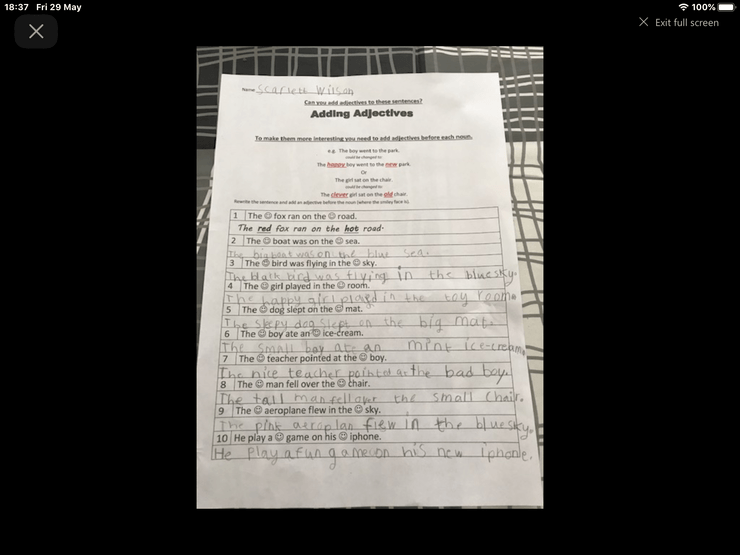 18:37 Fri 29 May
100%
Exit full screen
Name Scarlett Wilson
Can you add adjectives to these sentences?
Adding Adjectives
To make them more interesting you need to add adjectives before each noun.
e.g. The boy went to the park.
could be changed to:
The happy boy went to the new park.
Or
The girl sat on the chair.
could be changed to:
The clever girl sat on the old chair.
Rewrite the sentence and add an adjective before the noun (where the smiley face is).
1 The ☺ fox ran on the ☺ road.
The red fox ran on the hot road.
2 The ☺ boat was on the ☺ sea.
The big boat was on the blue sea.
3 The ☺ bird was flying in the ☺ sky.
The black bird was flying in the blue sky.
4 The ☺ girl played in the ☺ room.
The happy girl playd in the toy room.
5 The ☺ dog slept on the ☺ mat.
The sleepy dog slept on the big mat.
6 The ☺ boy ate an ☺ ice-cream.
The small boy ate an mint ice-cream.
7 The ☺ teacher pointed at the ☺ boy.
The nice teacher pointed at the bad boy.
8 The ☺ man fell over the ☺ chair.
The tall man fell over the small chair.
9 The ☺ aeroplane flew in the ☺ sky.
The pink aeroplan flew in the blue sky.
10 He play a ☺ game on his ☺ iphone.
He Play a fun game on his new iphone.